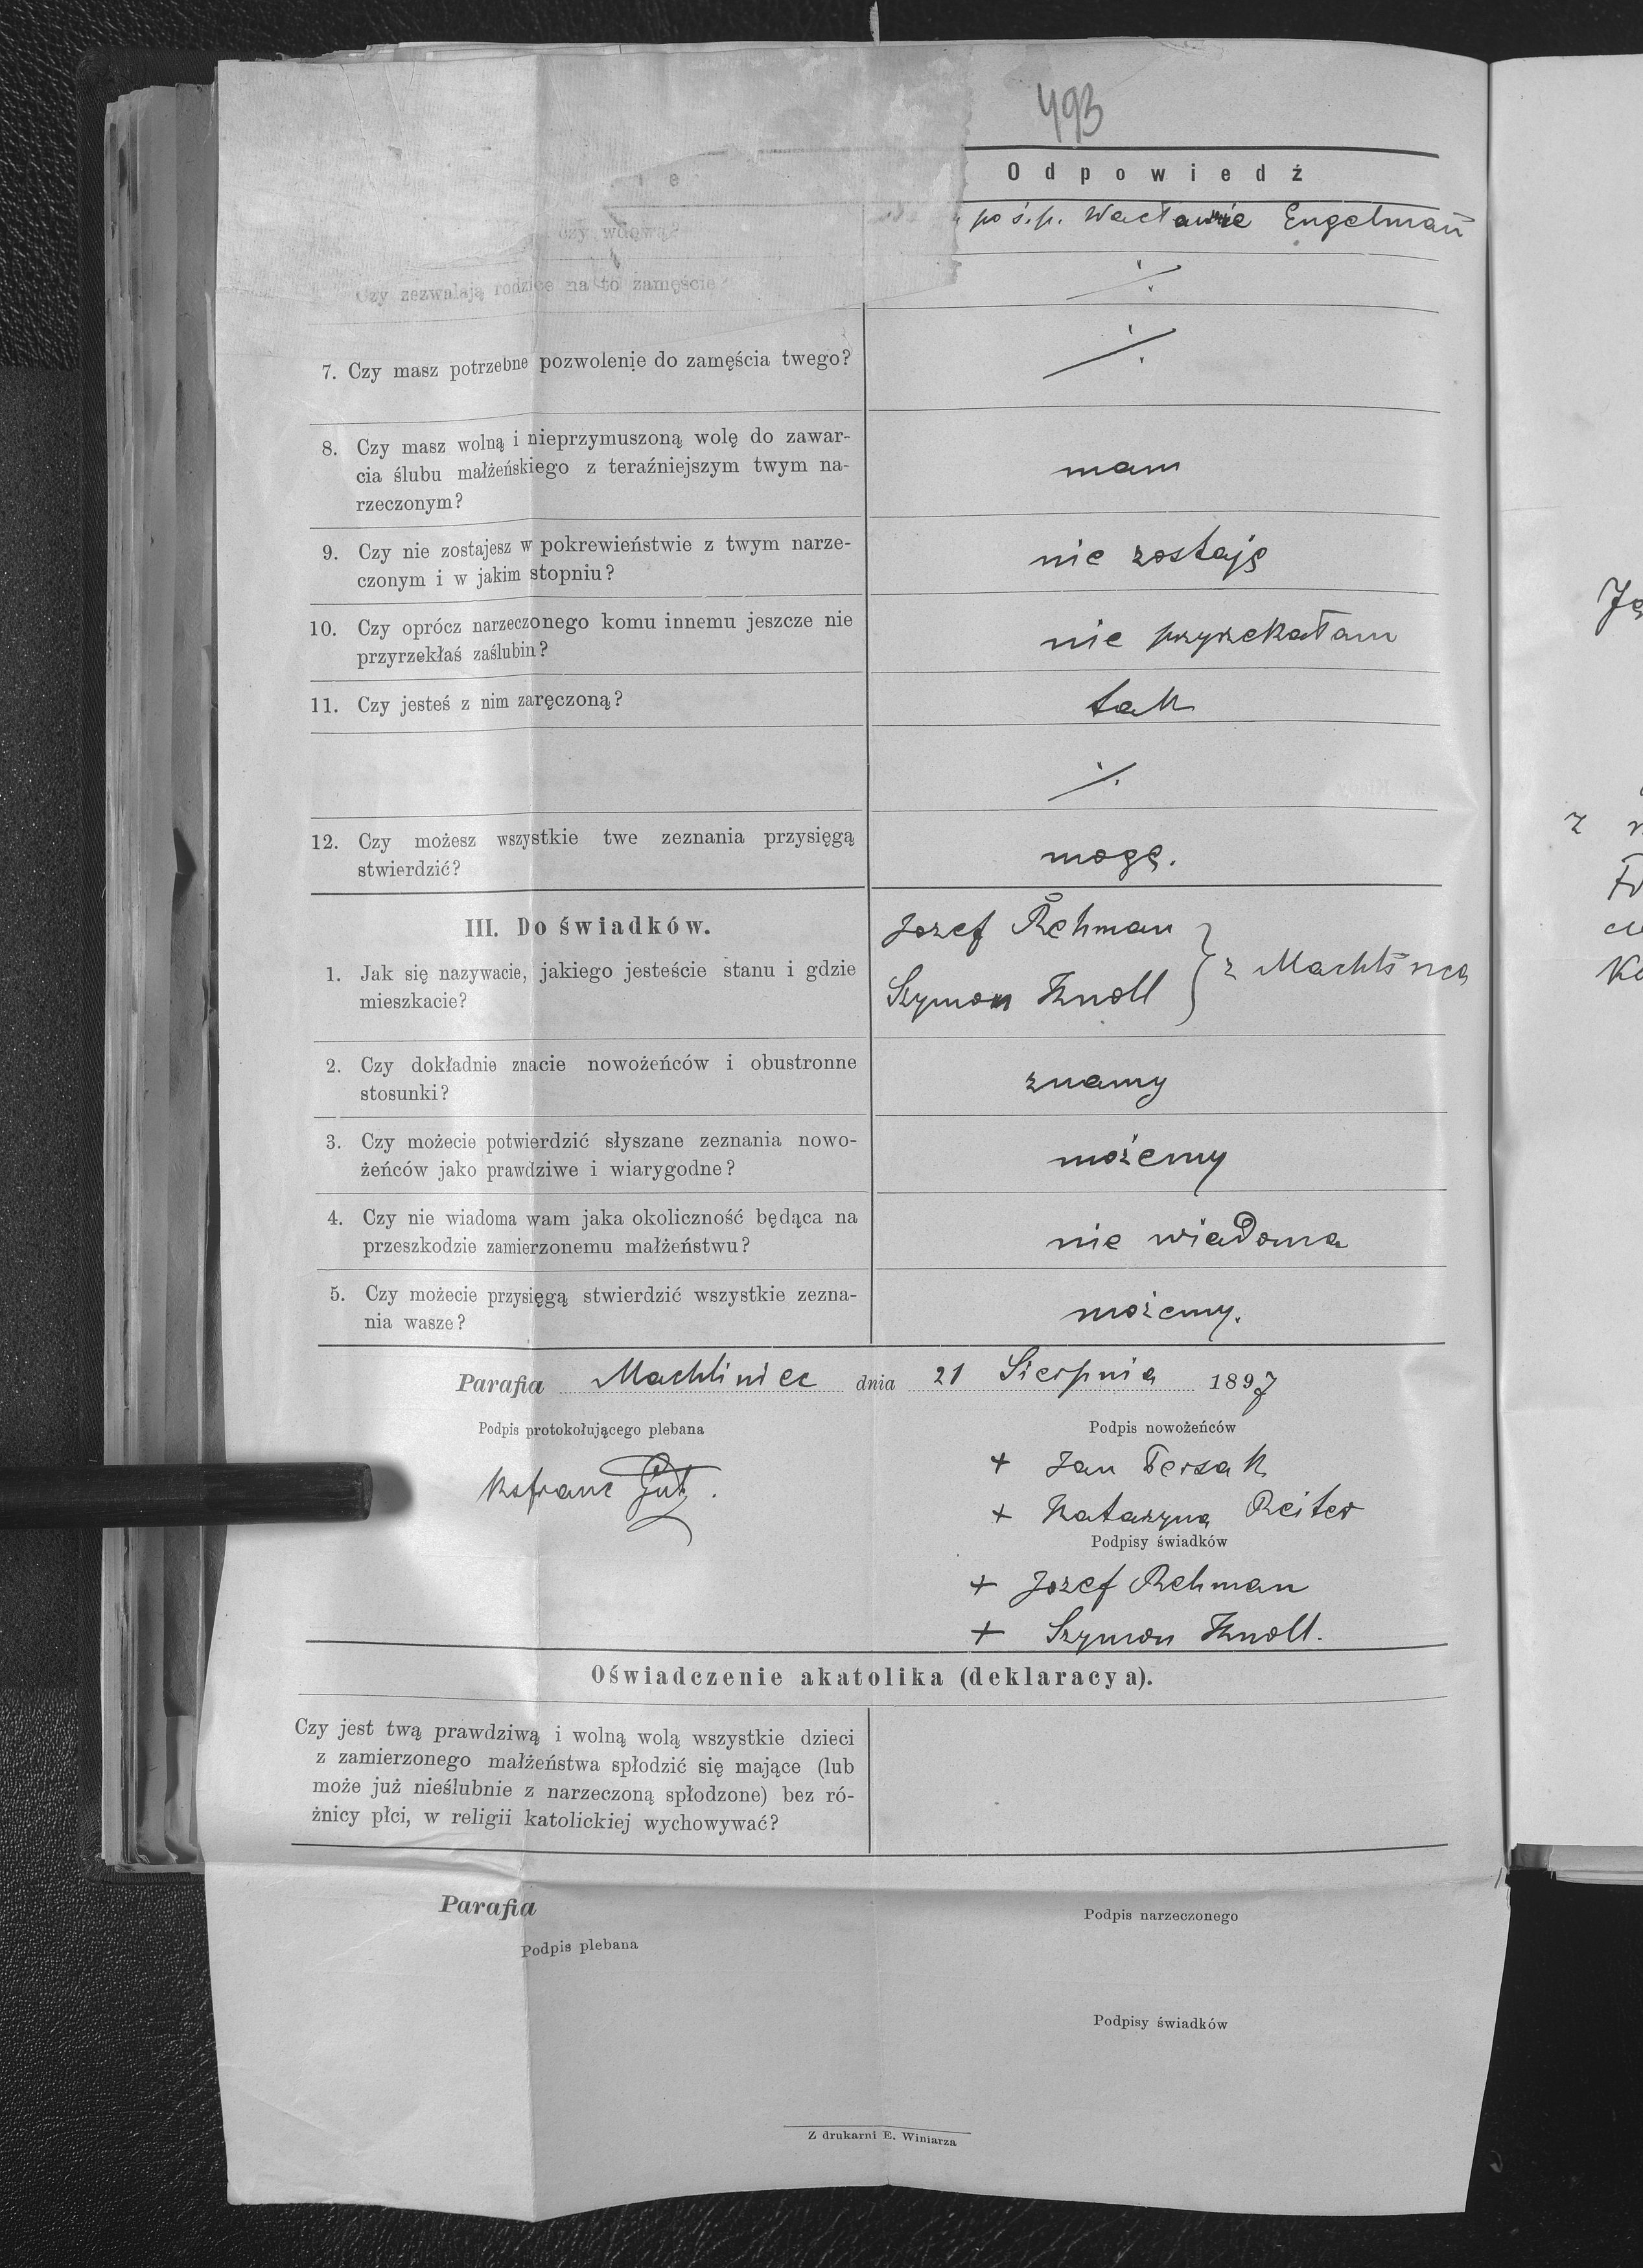 493
Odpowiedź
po ś.p. Wacławie Engelman
czy wdową?
Czy zezwalają rodzice na to zamęście?
./.
7. Czy masz potrzebne pozwolenie do zamęścia twego?
./.
8. Czy masz wolną i nieprzymuszoną wolę do zawar-
cia ślubu małżeńskiego z teraźniejszym twym na-
rzeczonym?
mam
9. Czy nie zostajesz w pokrewieństwie z twym narze-
czonym i w jakim stopniu?
nie zostaję
10. Czy oprócz narzeczonego komu innemu jeszcze nie
przyrzekłaś zaślubin?
nie przyrzekałam
11. Czy jesteś z nim zaręczoną?
tak
./.
12. Czy możesz wszystkie twe zeznania przysięgą
stwierdzić?
mogę.
III. Do świadków.
1. Jak się nazywacie, jakiego jesteście stanu i gdzie
mieszkacie?
Jozef Rehman
Szymon Knoll
} z Machlińca
2. Czy dokładnie znacie nowożeńców i obustronne
stosunki?
znamy
3. Czy możecie potwierdzić słyszane zeznania nowo-
żeńców jako prawdziwe i wiarygodne?
możemy
4. Czy nie wiadoma wam jaka okoliczność będąca na
przeszkodzie zamierzonemu małżeństwu?
nie wiadoma
5. Czy możecie przysięgą stwierdzić wszystkie zezna-
nia wasze?
możemy.
Parafia Machliniec dnia 21 Sierpnia 1897
Podpis protokołującego plebana
Podpis nowożeńców
+ Jan Tersak
+ Katarzyna Reiter
Podpisy świadków
+ Jozef Rehman
+ Szymon Knoll.
Oświadczenie akatolika (deklaracya).
Czy jest twą prawdziwą i wolną wolą wszystkie dzieci
z zamierzonego małżeństwa spłodzić się mające (lub
może już nieślubnie z narzeczoną spłodzone) bez ró-
żnicy płci, w religii katolickiej wychowywać?
Parafia
Podpis plebana
Podpis narzeczonego
Podpisy świadków
Z drukarni E. Winiarza